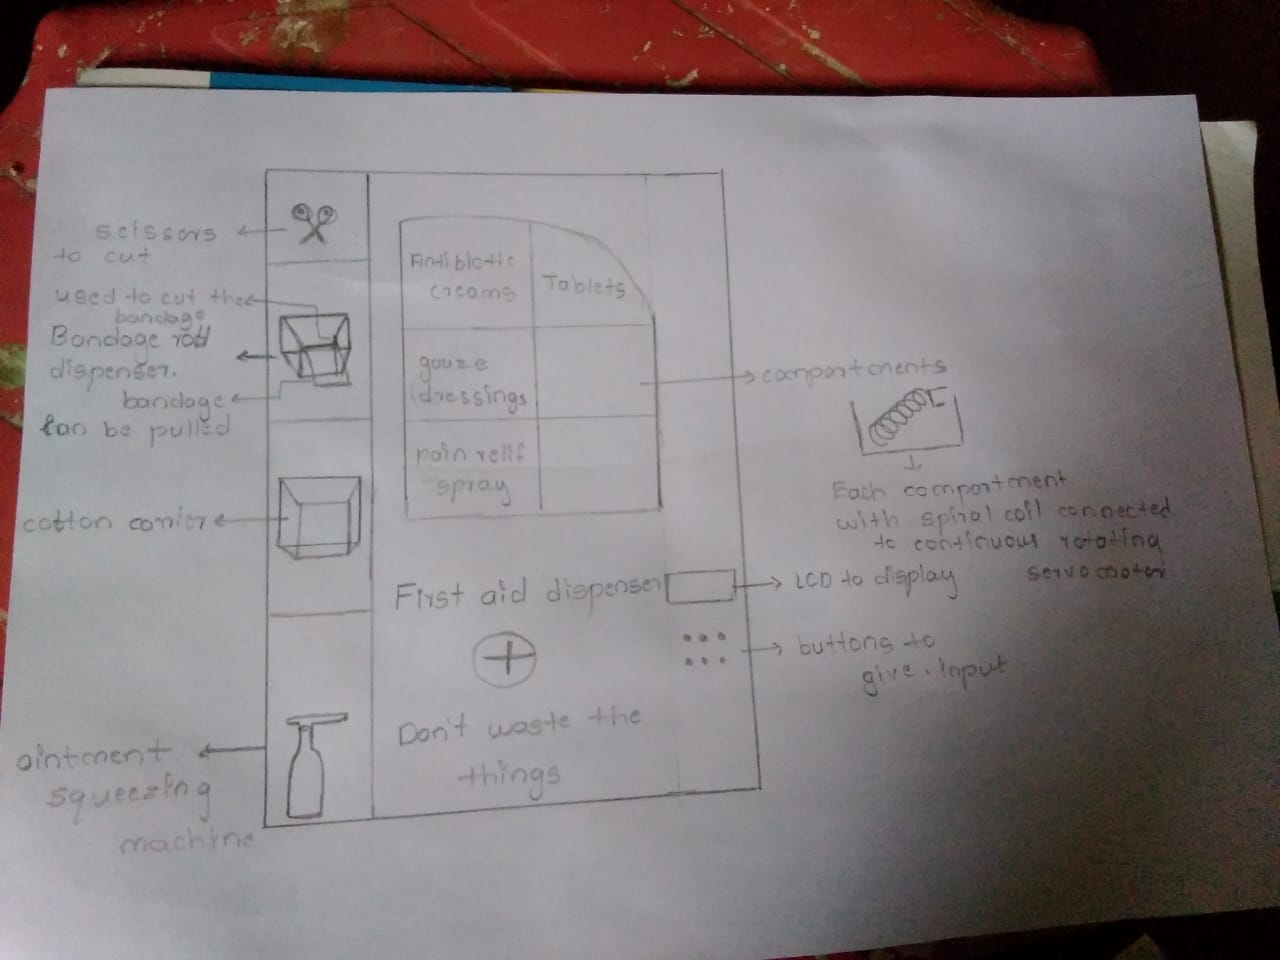 scissors
to cut
used to cut the
bandage
Bandage roll
dispenser.
bandage
can be pulled
cotton carrier
ointment
squeezing
machine
Antibiotic
creams
Tablets
gauze
dressings
pain relif
spray
First aid dispenser
Don't waste the
things
compartments
Each compartment
with spiral coil connected
to continuous rotating
servo motor
LCD to display
buttons to
give input